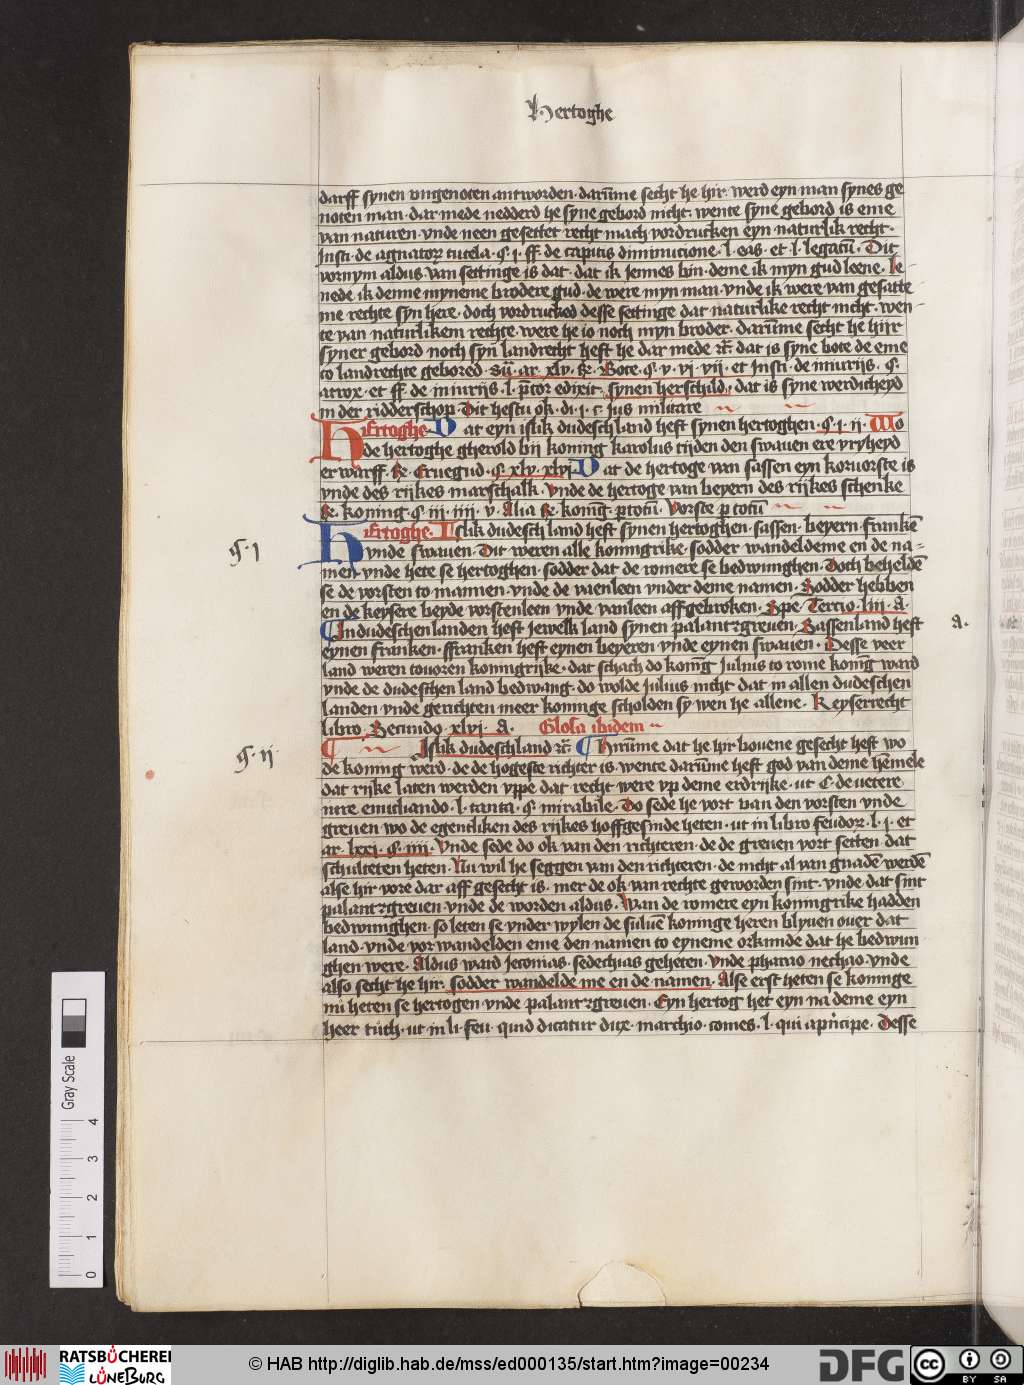 Hertoghe
darff synen vngenoten antworden· darūme secht he hir· werd eyn man synes ge
noten man· dar mede nedderd he syne gebord nicht· wente syne gebord is eme
van naturen· vnde neen gesettet recht mach vordrucken eyn naturlik recht·
Insti· de agnatoꝝ tutela· §· j· ff· de capitis diminucione· l· eas· et l· legatū· Dit
vornym aldus van settinge is dat· dat ik jennes bin· deme ik myn gud leene· Le
nede ik denne myneme brodere gud· de were myn man· vnde ik were van gesatte
me rechte syn here· doch vordrucked desse settinge dat naturlike recht nicht· wen
te van naturlikem rechte· were he io noch myn broder· darūme secht he hijr
syner gebord noch syn̄ landrecht heft he dar mede ꝛc̄· dat is syne bote de eme
to landrechte gebored· sū· ar· xlv· ꝶ· Bote· §· v· vj· vij· et Insti· de iniurijs· §·
atrox· et ff· de iniurijs· l· p̄toꝛ edixit· synen herschild· dat is syne werdicheyd
in der ridderschop· Dit hestu ok· di· j· c· Jus militare
Hertoghe· Dat eyn islik dudesch land heft synen hertoghen· §· j· ij· Wo
de hertoghe gherold bij koning karolus tijden den swauen ere vryheyd
er warff· ꝶ· Eruegud· §· xlv· xlvj· Dat de hertoge van sassen eyn korvorste is
vnde des rijkes marschalk· Vnde de hertoge van beyern des rijkes schenke
ꝶ· koning· §· iij· iiij· v· Alia ꝶ· konīg· ꝑ totū· Vorste ꝑ totū
Hertoghe· Islik dudesch land heft synen hertoghen· sassen· beyern· frankē
§· j
vnde swauen· Dit weren alle koningrike· sodder wandeldeme en de na=
men· vnde hete se hertoghen· sodder dat de romere se bedwunghen· Doch beheldē
se de vorsten to mannen· vnde de vaenleen vnder deme namen· Sodder hebben
en de keysere beyde vorstenleen vnde vanleen affgebroken· Spe· Tercio· liii· A·
Indudeschen landen heft jewelk land synen palantzgreuen· Sassenland heft
a·
eynen franken· ffranken heft eynen beyeren vnde eynen swauen· Desse veer
land weren touoren koningrijke· dat schach do konīg Julius to rome konīg ward
vnde de dudeschen land bedwang· do wolde Julius nicht dat in allen dudeschen
landen vnde gerichten meer koninge scholden sy wen he allene· Keyserrecht
libro Secundo xlvj· A· Glosa ibidem
§· ij
Islik dudesch land ꝛc̄· Hirūme dat he hir bouene gesecht heft wo
de koning werd· de de hogeste richter is· wente darūme heft god van deme hēmele
dat rijke laten werden vppe dat recht were vp deme erdrijke· ut C· de vetere
iure enucliando· l· tanta· §· mirabile· Do sede he vort van den vorsten vnde
greuen wo de egentliken des rijkes hoffgesinde heten· ut in libro feudoꝝ· l· j· et
ar· lxxj· §· iiij· Vnde sede do ok van den richteren· de de greuen vort setten· dat
schulteten heten· Nu wil he seggen van den richteren· de nicht al van gnadē werdē
alse hir vore dar aff gesecht is· mer de ok van rechte geworden sint· vnde dat sint
palantzgreuen· vnde de worden aldus· Wan de romere eyn koningrike hadden
bedwunghen· so leten se vnder wylen de suluē koninge heren blyuen ouer dat
land· vnde vorwandelden eme den namen to eyneme orkunde dat he bedwun
ghen were· Aldus ward Jeconias· sedechias geheten· Vnde pharao nechao· vnde
also secht he hir· sodder wandelde me en de namen· Alse erst heten se koninge
nū heten se hertogen vnde palantzgreuen· Eyn hertog het eyn na deme eyn
heer tuth· ut in li· feu· quid dicatur dux· marchio· comes· l· qui a pͥncipe· Desse
Gray Scale
0 1 2 3 4
RATSBÜCHEREI
LÜNEBURG
© HAB http://diglib.hab.de/mss/ed000135/start.htm?image=00234
DFG
cc BY SA